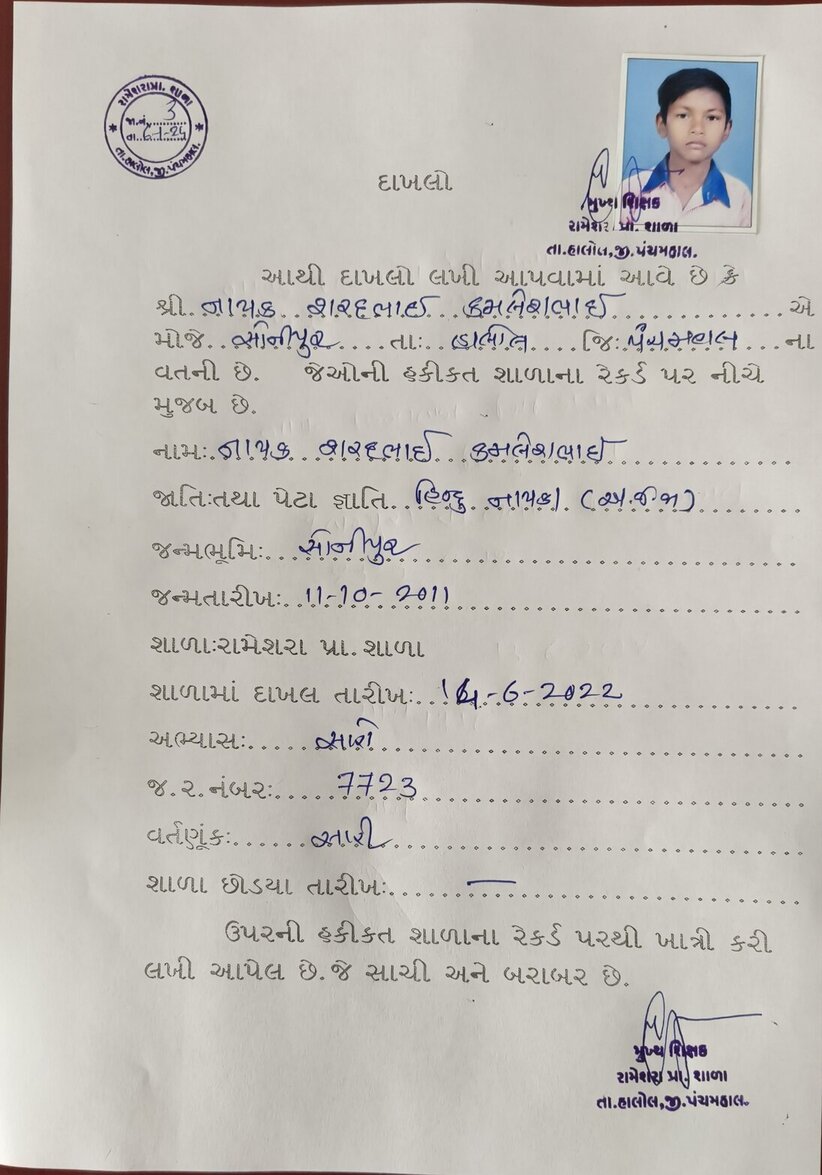 રામેશરા પ્રા. શાળા
જા.નં. 3
તા. 6-1-25
તા.હાલોલ,જી.પંચમહાલ.
દાખલો
મુખ્ય શિક્ષક
રામેશરા પ્રા. શાળા
તા.હાલોલ,જી.પંચમહાલ.
આથી દાખલો લખી આપવામાં આવે છે કે
શ્રી. નાયક શરદભાઈ કમલેશભાઈ એ
મોજે. સોનીપુર તા: હાલોલ જિ: પંચમહાલ ના
વતની છે. જેઓની હકીકત શાળાના રેકર્ડ પર નીચે
મુજબ છે.
નામ: નાયક શરદભાઈ કમલેશભાઈ
જાતિ:તથા પેટા જ્ઞાતિ. હિન્દુ નાયકા (અ.જ.જા)
જન્મભૂમિ: સોનીપુર
જન્મતારીખ: 11-10-2011
શાળા:રામેશરા પ્રા.શાળા
શાળામાં દાખલ તારીખ: -6-2022
અભ્યાસ: સારો
જ.ર.નંબર: 7723
વર્તણૂંક: સારી
શાળા છોડયા તારીખ: —
ઉપરની હકીકત શાળાના રેકર્ડ પરથી ખાત્રી કરી
લખી આપેલ છે.જે સાચી અને બરાબર છે.
મુખ્ય શિક્ષક
રામેશરા પ્રા. શાળા
તા.હાલોલ,જી.પંચમહાલ.